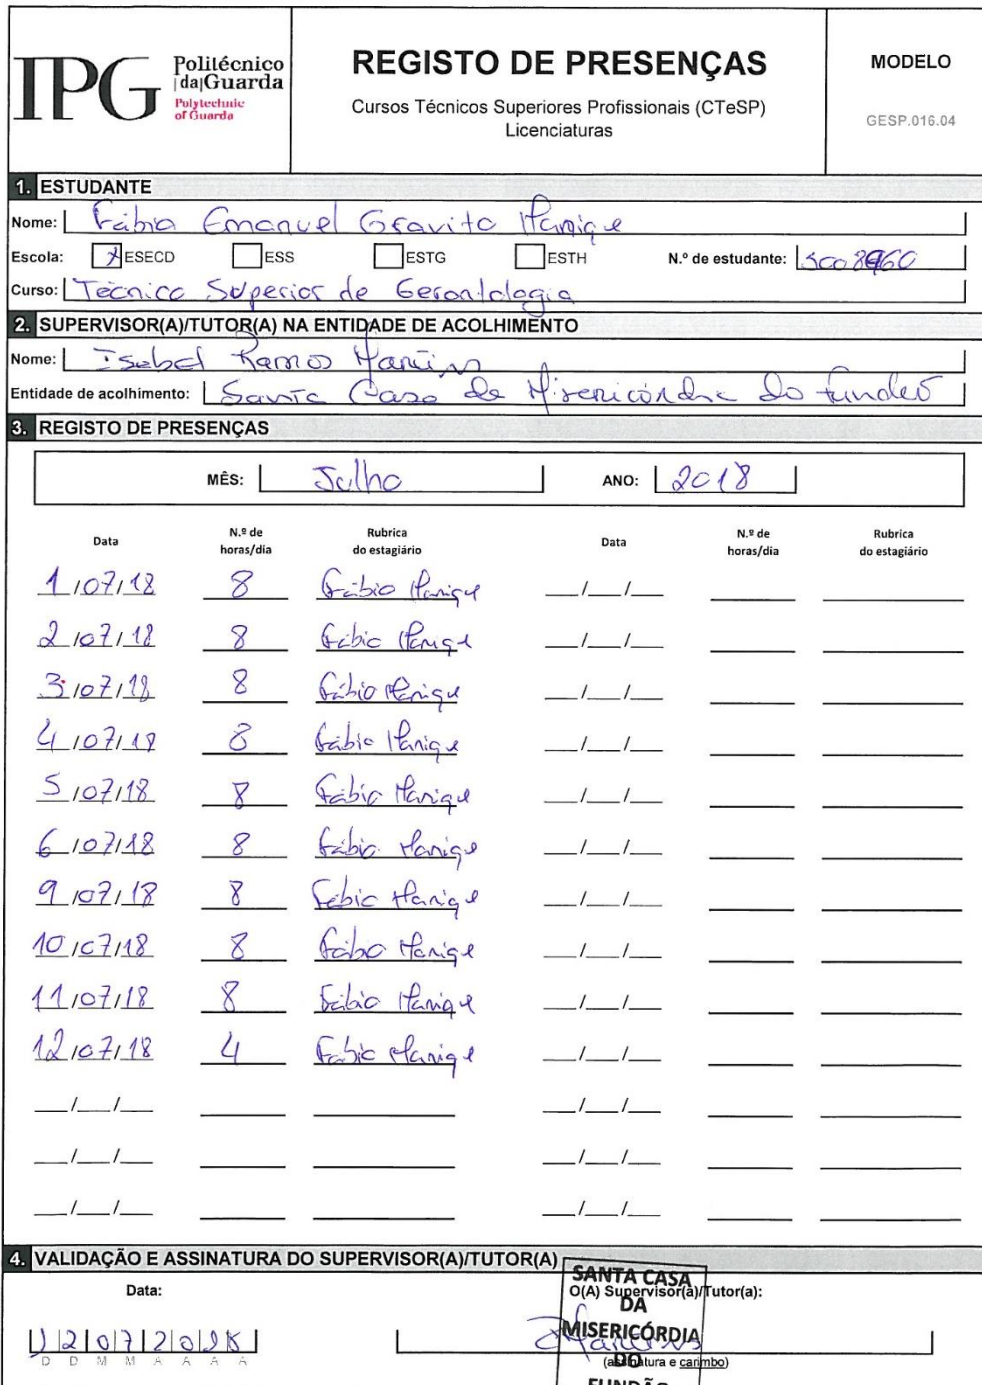 IPG Politécnico
|da|Guarda
Polytechnic
of Guarda
REGISTO DE PRESENÇAS
Cursos Técnicos Superiores Profissionais (CTeSP)
Licenciaturas
MODELO
GESP.016.04
1. ESTUDANTE
Nome: Fábio Emanuel Gravito Manique
Escola: X ESECD ESS ESTG ESTH N.º de estudante:
Curso: Técnico Superior de Gerontologia
2. SUPERVISOR(A)/TUTOR(A) NA ENTIDADE DE ACOLHIMENTO
Nome: Isabel Ramos Martins
Entidade de acolhimento: Santa Casa da Misericórdia do Fundão
3. REGISTO DE PRESENÇAS
MÊS: Julho ANO: 2018
Data N.º de horas/dia Rubrica do estagiário Data N.º de horas/dia Rubrica do estagiário
1/07/18 8 Fábio Manique __/__/__
2/07/18 8 Fábio Manique __/__/__
3/07/18 8 Fábio Manique __/__/__
4/07/18 8 Fábio Manique __/__/__
5/07/18 8 Fábio Manique __/__/__
6/07/18 8 Fábio Manique __/__/__
9/07/18 8 Fábio Manique __/__/__
10/07/18 8 Fábio Manique __/__/__
11/07/18 8 Fábio Manique __/__/__
12/07/18 4 Fábio Manique __/__/__
__/__/__ __/__/__
__/__/__ __/__/__
__/__/__ __/__/__
4. VALIDAÇÃO E ASSINATURA DO SUPERVISOR(A)/TUTOR(A)
Data: O(A) Supervisor(a)/Tutor(a):
SANTA CASA
DA
MISERICÓRDIA
DO
FUNDÃO
12072018
D D M M A A A A
(assinatura e carimbo)